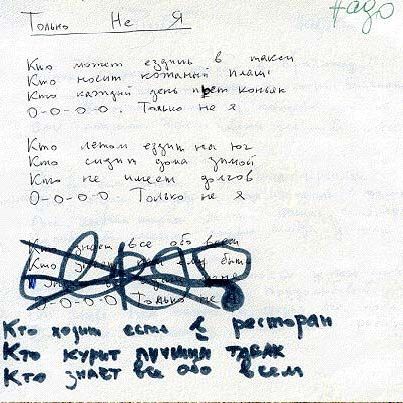 Только Не Я
Кто может ездить в такси
Кто носит кожаный плащ
Кто каждый день пьет коньяк
О-О-О-О. Только не я
Кто летом ездит на юг
Кто сидит дома зимой
Кто не имеет долгов
О-О-О-О Только не я
Кто знает все обо всем
Кто быть
О-О-О-О Только не
Кто ходит есть в ресторан
Кто курит лучший табак
Кто знает все обо всем